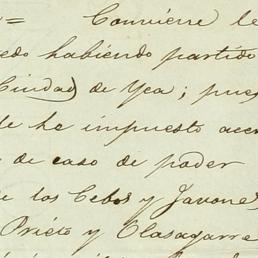 = Conviene le
edo habiendo partido
Ciudad de Yca; pues
de he impuesto acer
de caso de poder
e los Cebos y Javone
Prieto y Olasagarre